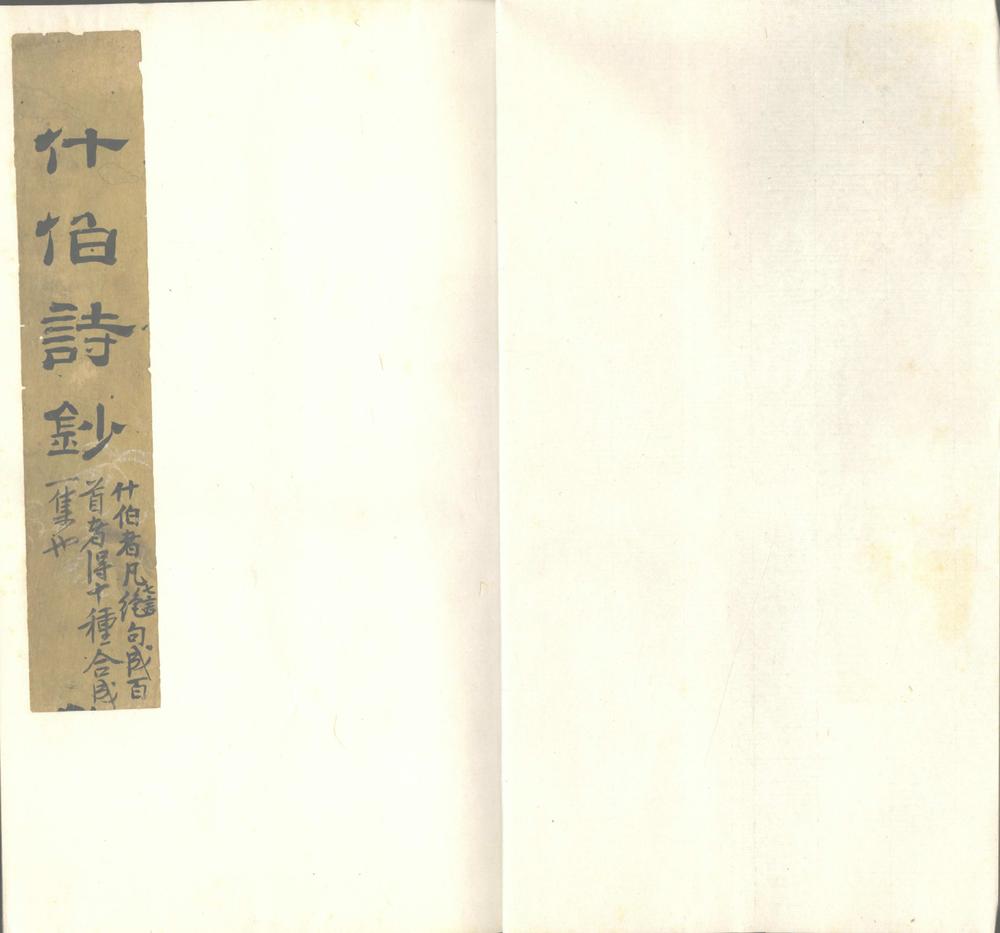 什伯詩鈔
什伯者凡七言絕句成百
首者得十種合成
一集也